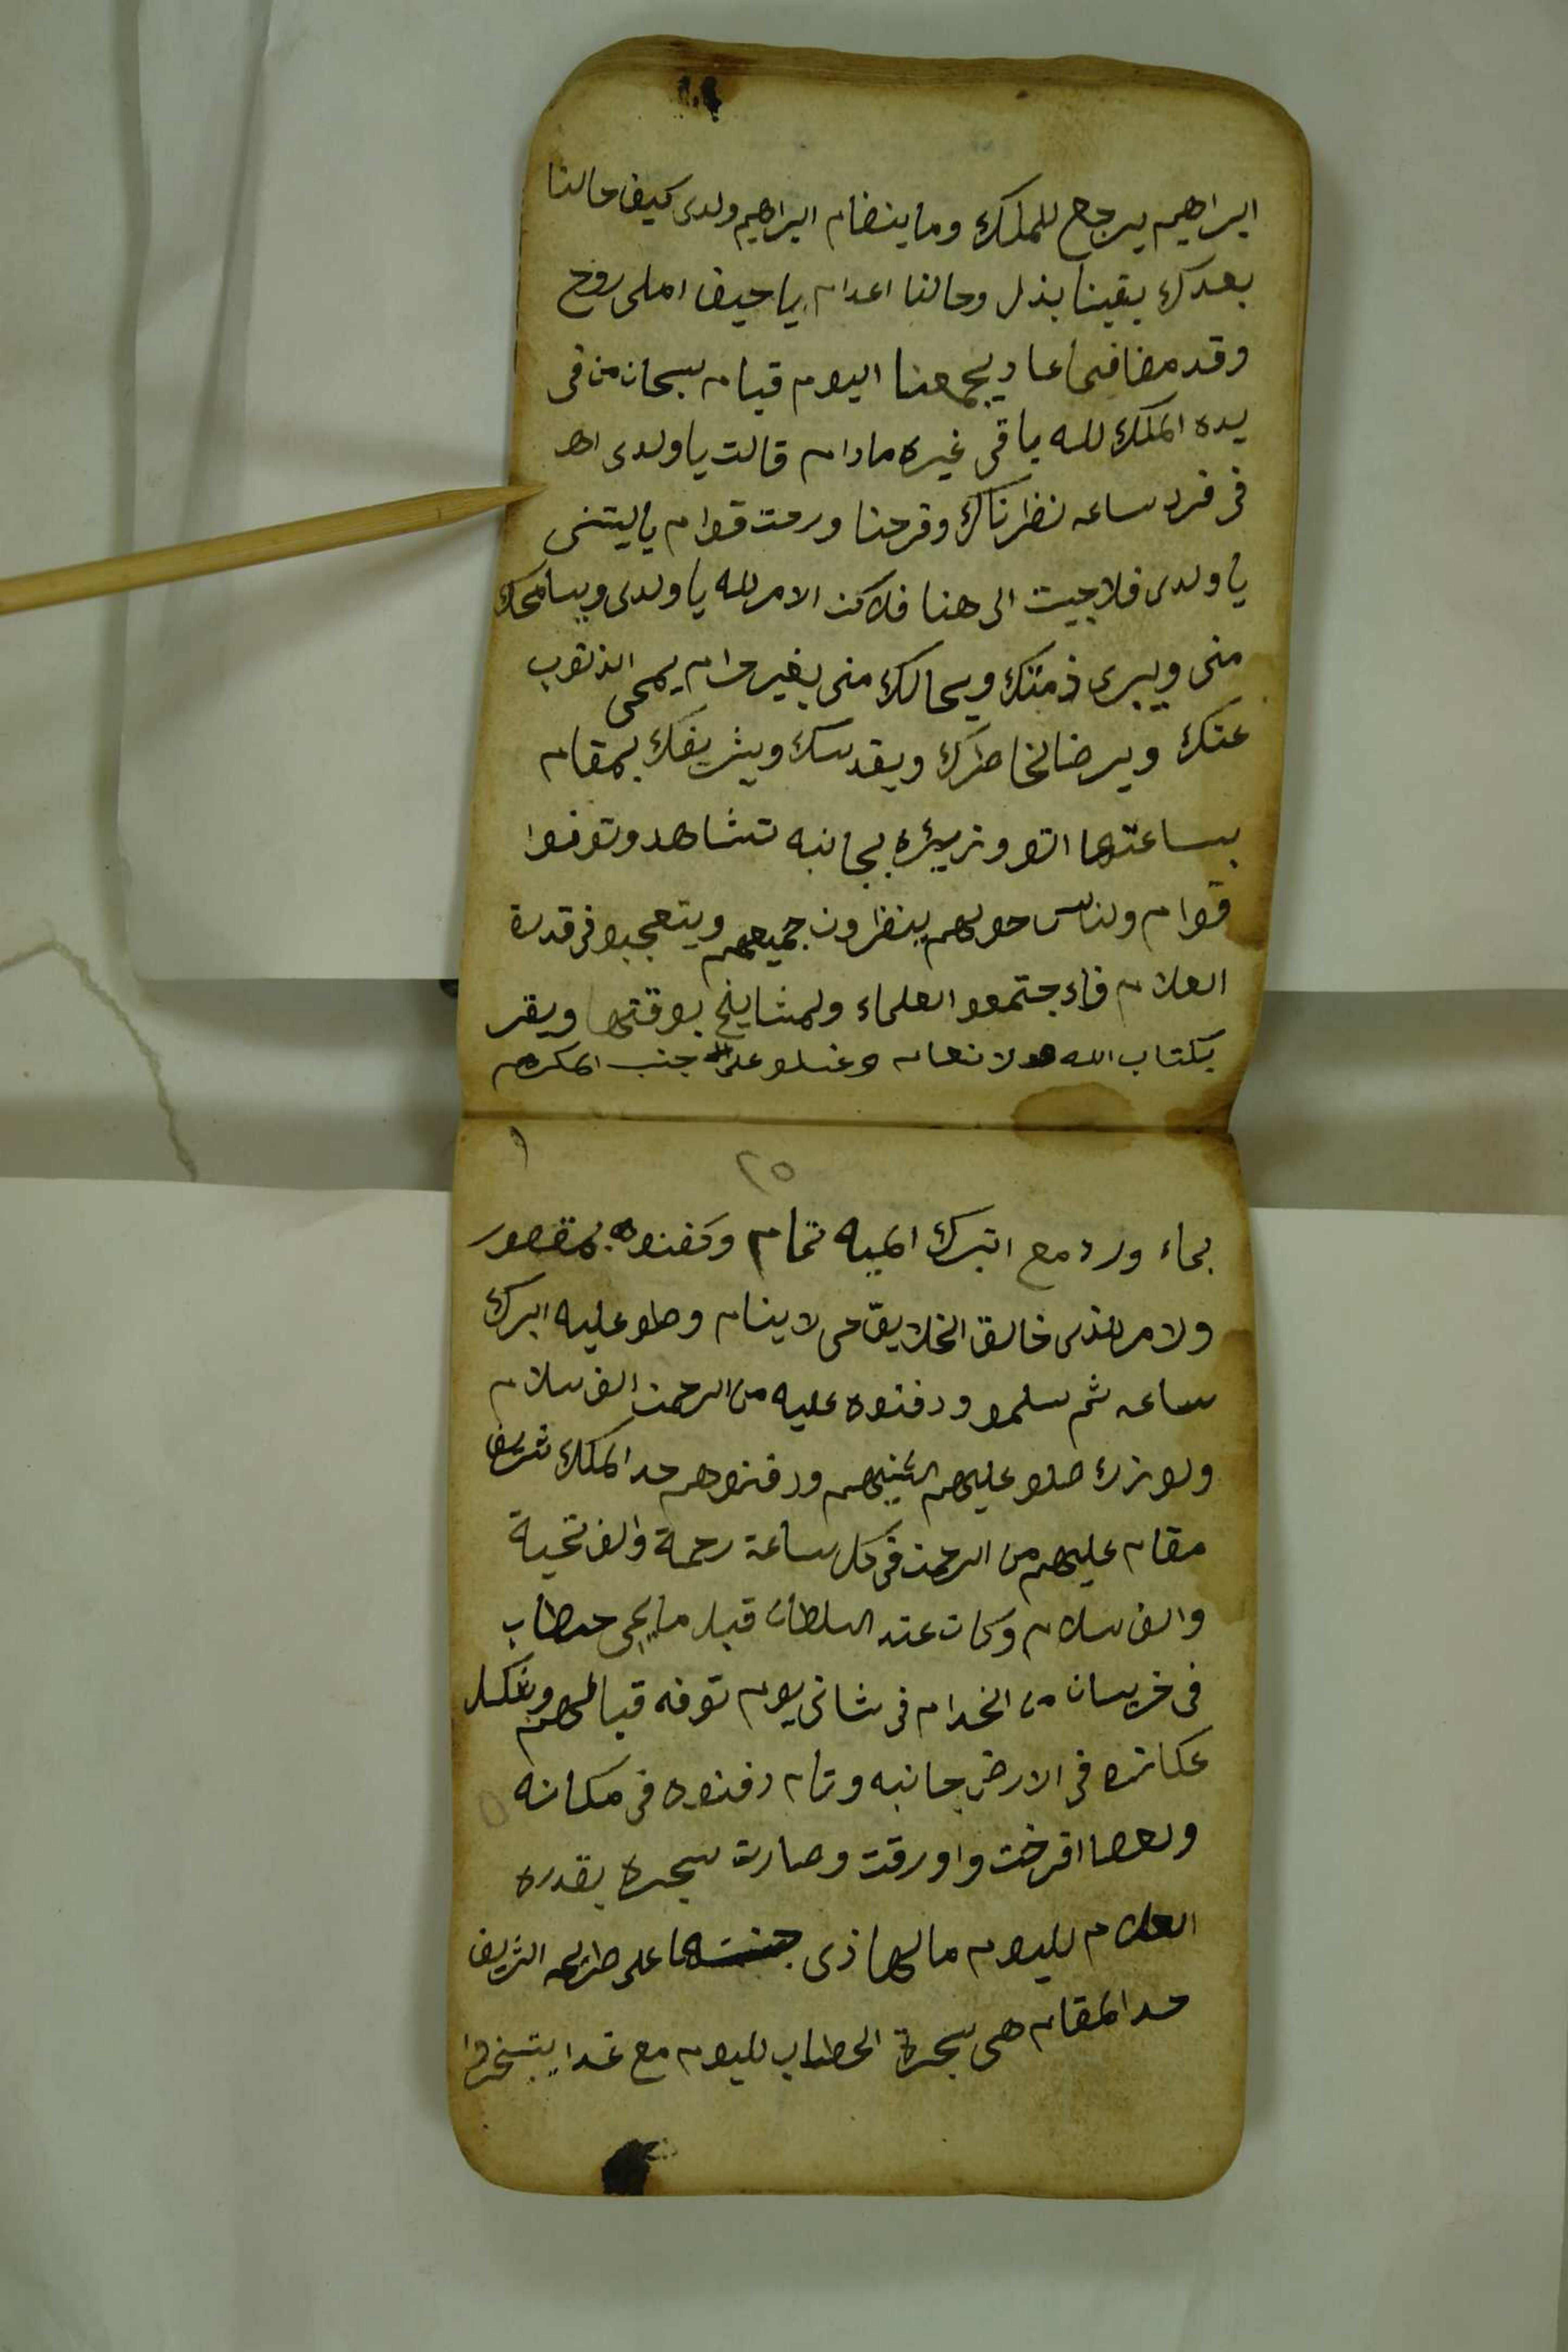 ابراهيم يرجع للملك وما ينضام ابراهيم ولدى كيف حالنا
بعدك بقينا بذل وحالنا اعدام يا حيف املى روح
وقد مضا فيما عاد يجمعنا اليوم قيام سبحان من فى
يده الملك لله باقى غيره ما دام قالت يا ولدى اه
فى فرد ساعه نظرناك وفرحنا ورحت قوام يا ليتنى
يا ولدى فلا جيت الى هنا فلاكن الامر لله يا ولدى ويسامحك
منى ويبرى ذمتك ويحالك منى بغير حرام يمحى الذنوب
عنك ويرضا لخاطرك ويقدسك ويشريفك بمقام
بساعتها اتو وزيره بجانبه تشاهد وتوفوا
قوام ولناس حولهم ينظرون جميعهم ويتعجبو فى قدرة
العلام فاءجتمعو العلماء ولمشايخ بوقتها ويقر
بكتاب الله ولانعام وغسلو على جنب المكرهم
٢٥
بماء ورد مع اتبرك الميه تمام وكفنوه بمقصور
ولامر للذى خالق الخلايق حى لا ينام وصلو عليه ابرك
ساعه ثم سلمو ودفنوه عليه من الرحمن الف سلام
ولوزرا صلو عليهم اثنينهم ودفنوهم حد الملك شريف
مقام عليهم من الرحمن فى كل ساعة رحمة والف تحية
والف سلام وكان عند السلطان قبل ما يجى حطاب
فى خريسان من الخدام فى ثانى يوم توفه قبالهم وبتكل
عكازه فى الارض جانبه ونام دفنوه فى مكانه
ولعصا افرخت واورقت وصارت سجره بقدره
العلام لليوم مالها ذى على ضريحه الشريف
حد المقام هى سجرة الحطاب لليوم مع غدا